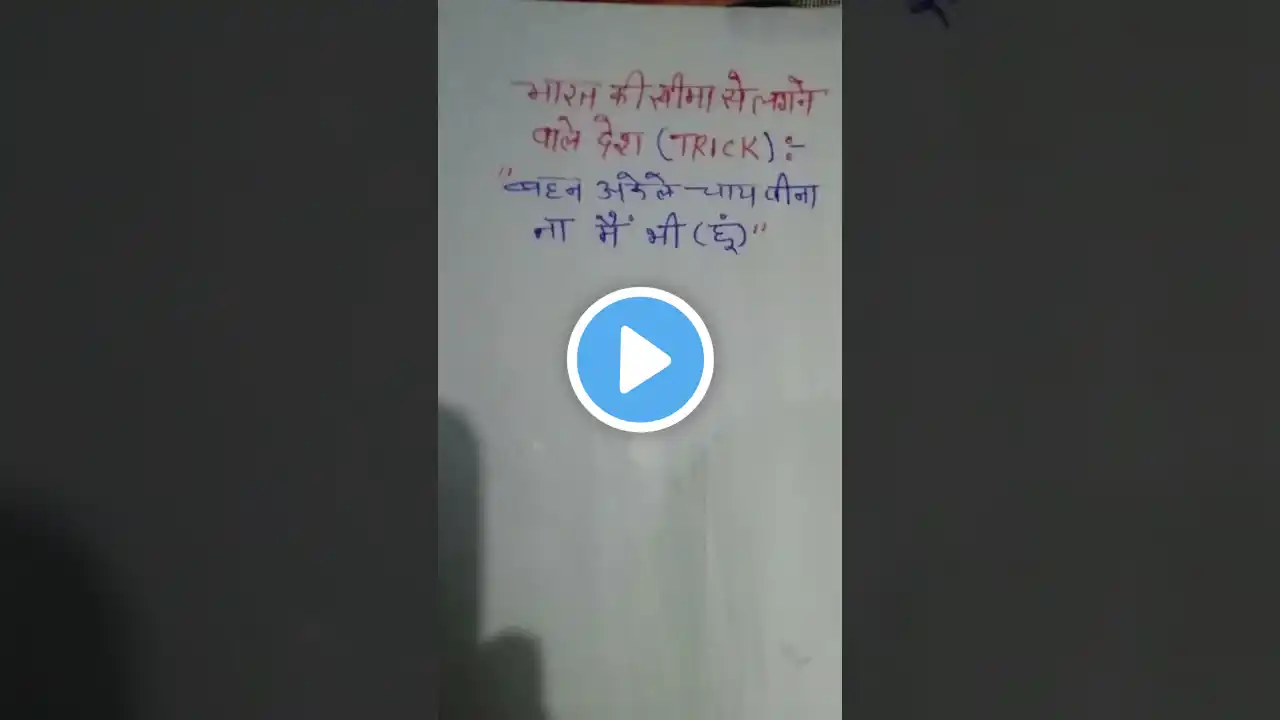 भारत की सीमा से लगने
वाले देश (TRICK):-
"बहन अकेले चाय पीना
ना मैं भी (हूं)"